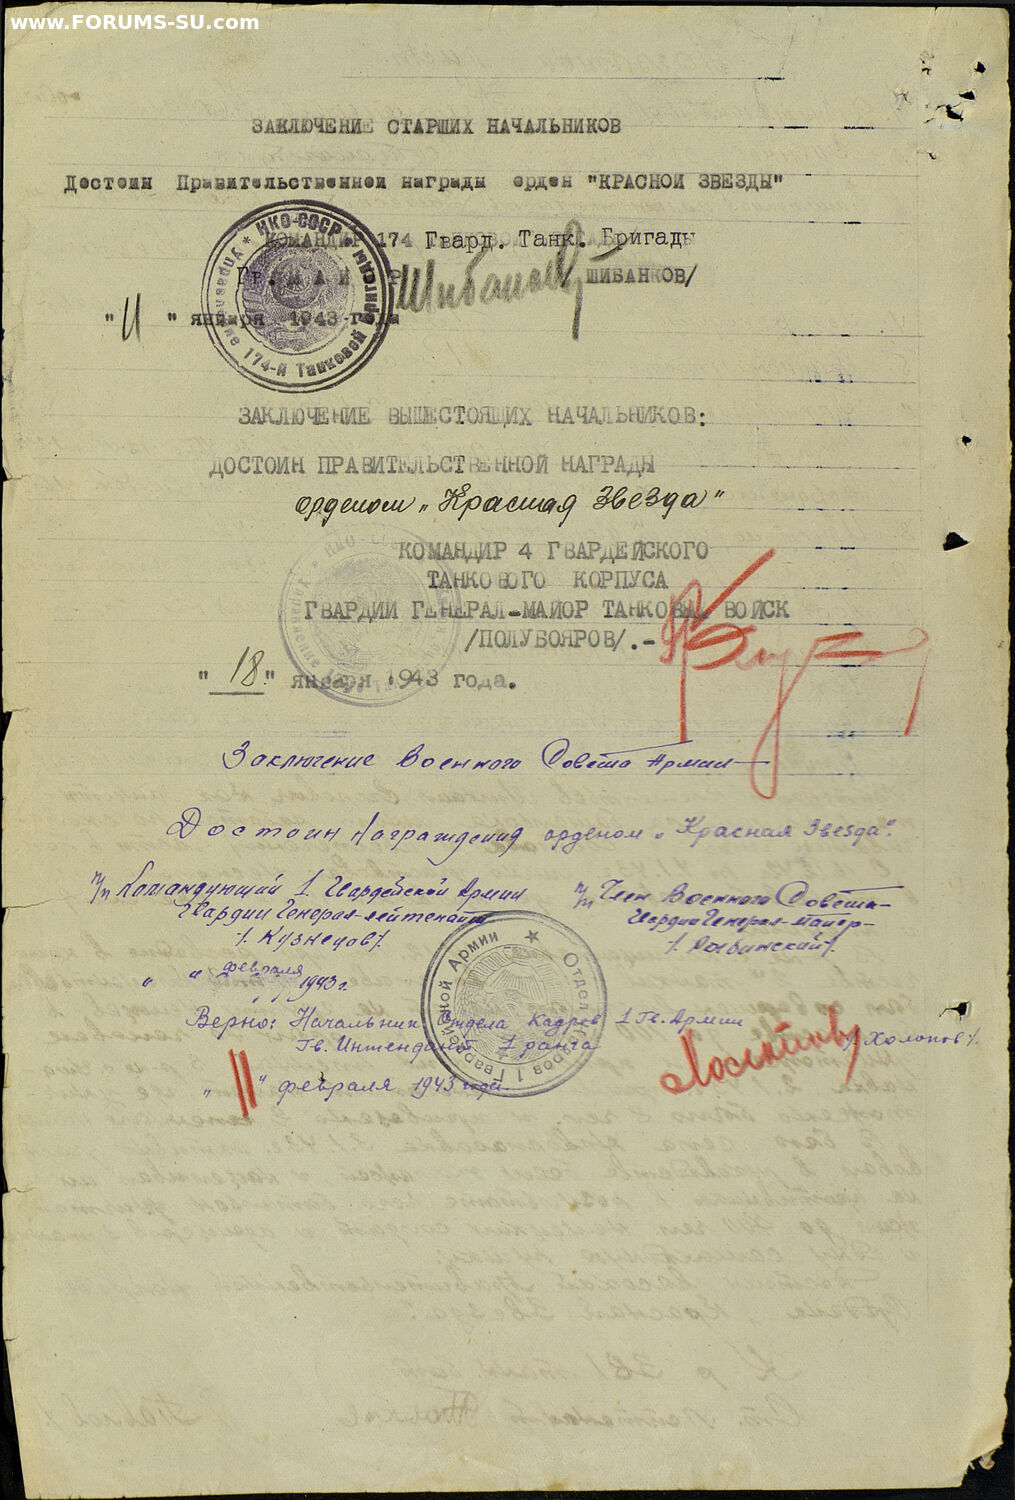 www.FORUMS-SU.com
ЗАКЛЮЧЕНИЕ СТАРШИХ НАЧАЛЬНИКОВ
Достоин Правительственной награды орден "КРАСНОЙ ЗВЕЗДЫ"
КОМАНДИР 174 Гвард. Танк. Бригады
Гв. М А Й О Р Шибанков /ШИБАНКОВ/
" 11 " января 1943 года
НКО-СССР
174-й Танковой Бригады
ЗАКЛЮЧЕНИЕ ВЫШЕСТОЯЩИХ НАЧАЛЬНИКОВ:
ДОСТОИН ПРАВИТЕЛЬСТВЕННОЙ НАГРАДЫ
орденом „Красная Звезда"
КОМАНДИР 4 ГВАРДЕЙСКОГО
ТАНКОВОГО КОРПУСА
ГВАРДИИ ГЕНЕРАЛ-МАЙОР ТАНКОВЫХ ВОЙСК
/ПОЛУБОЯРОВ/.-
" 18 " января 1943 года.
Заключение Военного Совета Армии
Достоин Награждения орденом „Красная Звезда".
п/п Командующий 1 Гвардейской Армии
Гвардии Генерал-лейтенант
/Кузнецов/.
п/п Член Военного Совета
Гвардии Генерал-майор
„ " февраля 1943 г.
Верно: Начальник Отдела Кадров 1 Гв. Армии
Гв. Интендант 1 ранга /Холопов/.
„ 11 " февраля 1943 года
Отдел Кадров 1 Гвардейской Армии